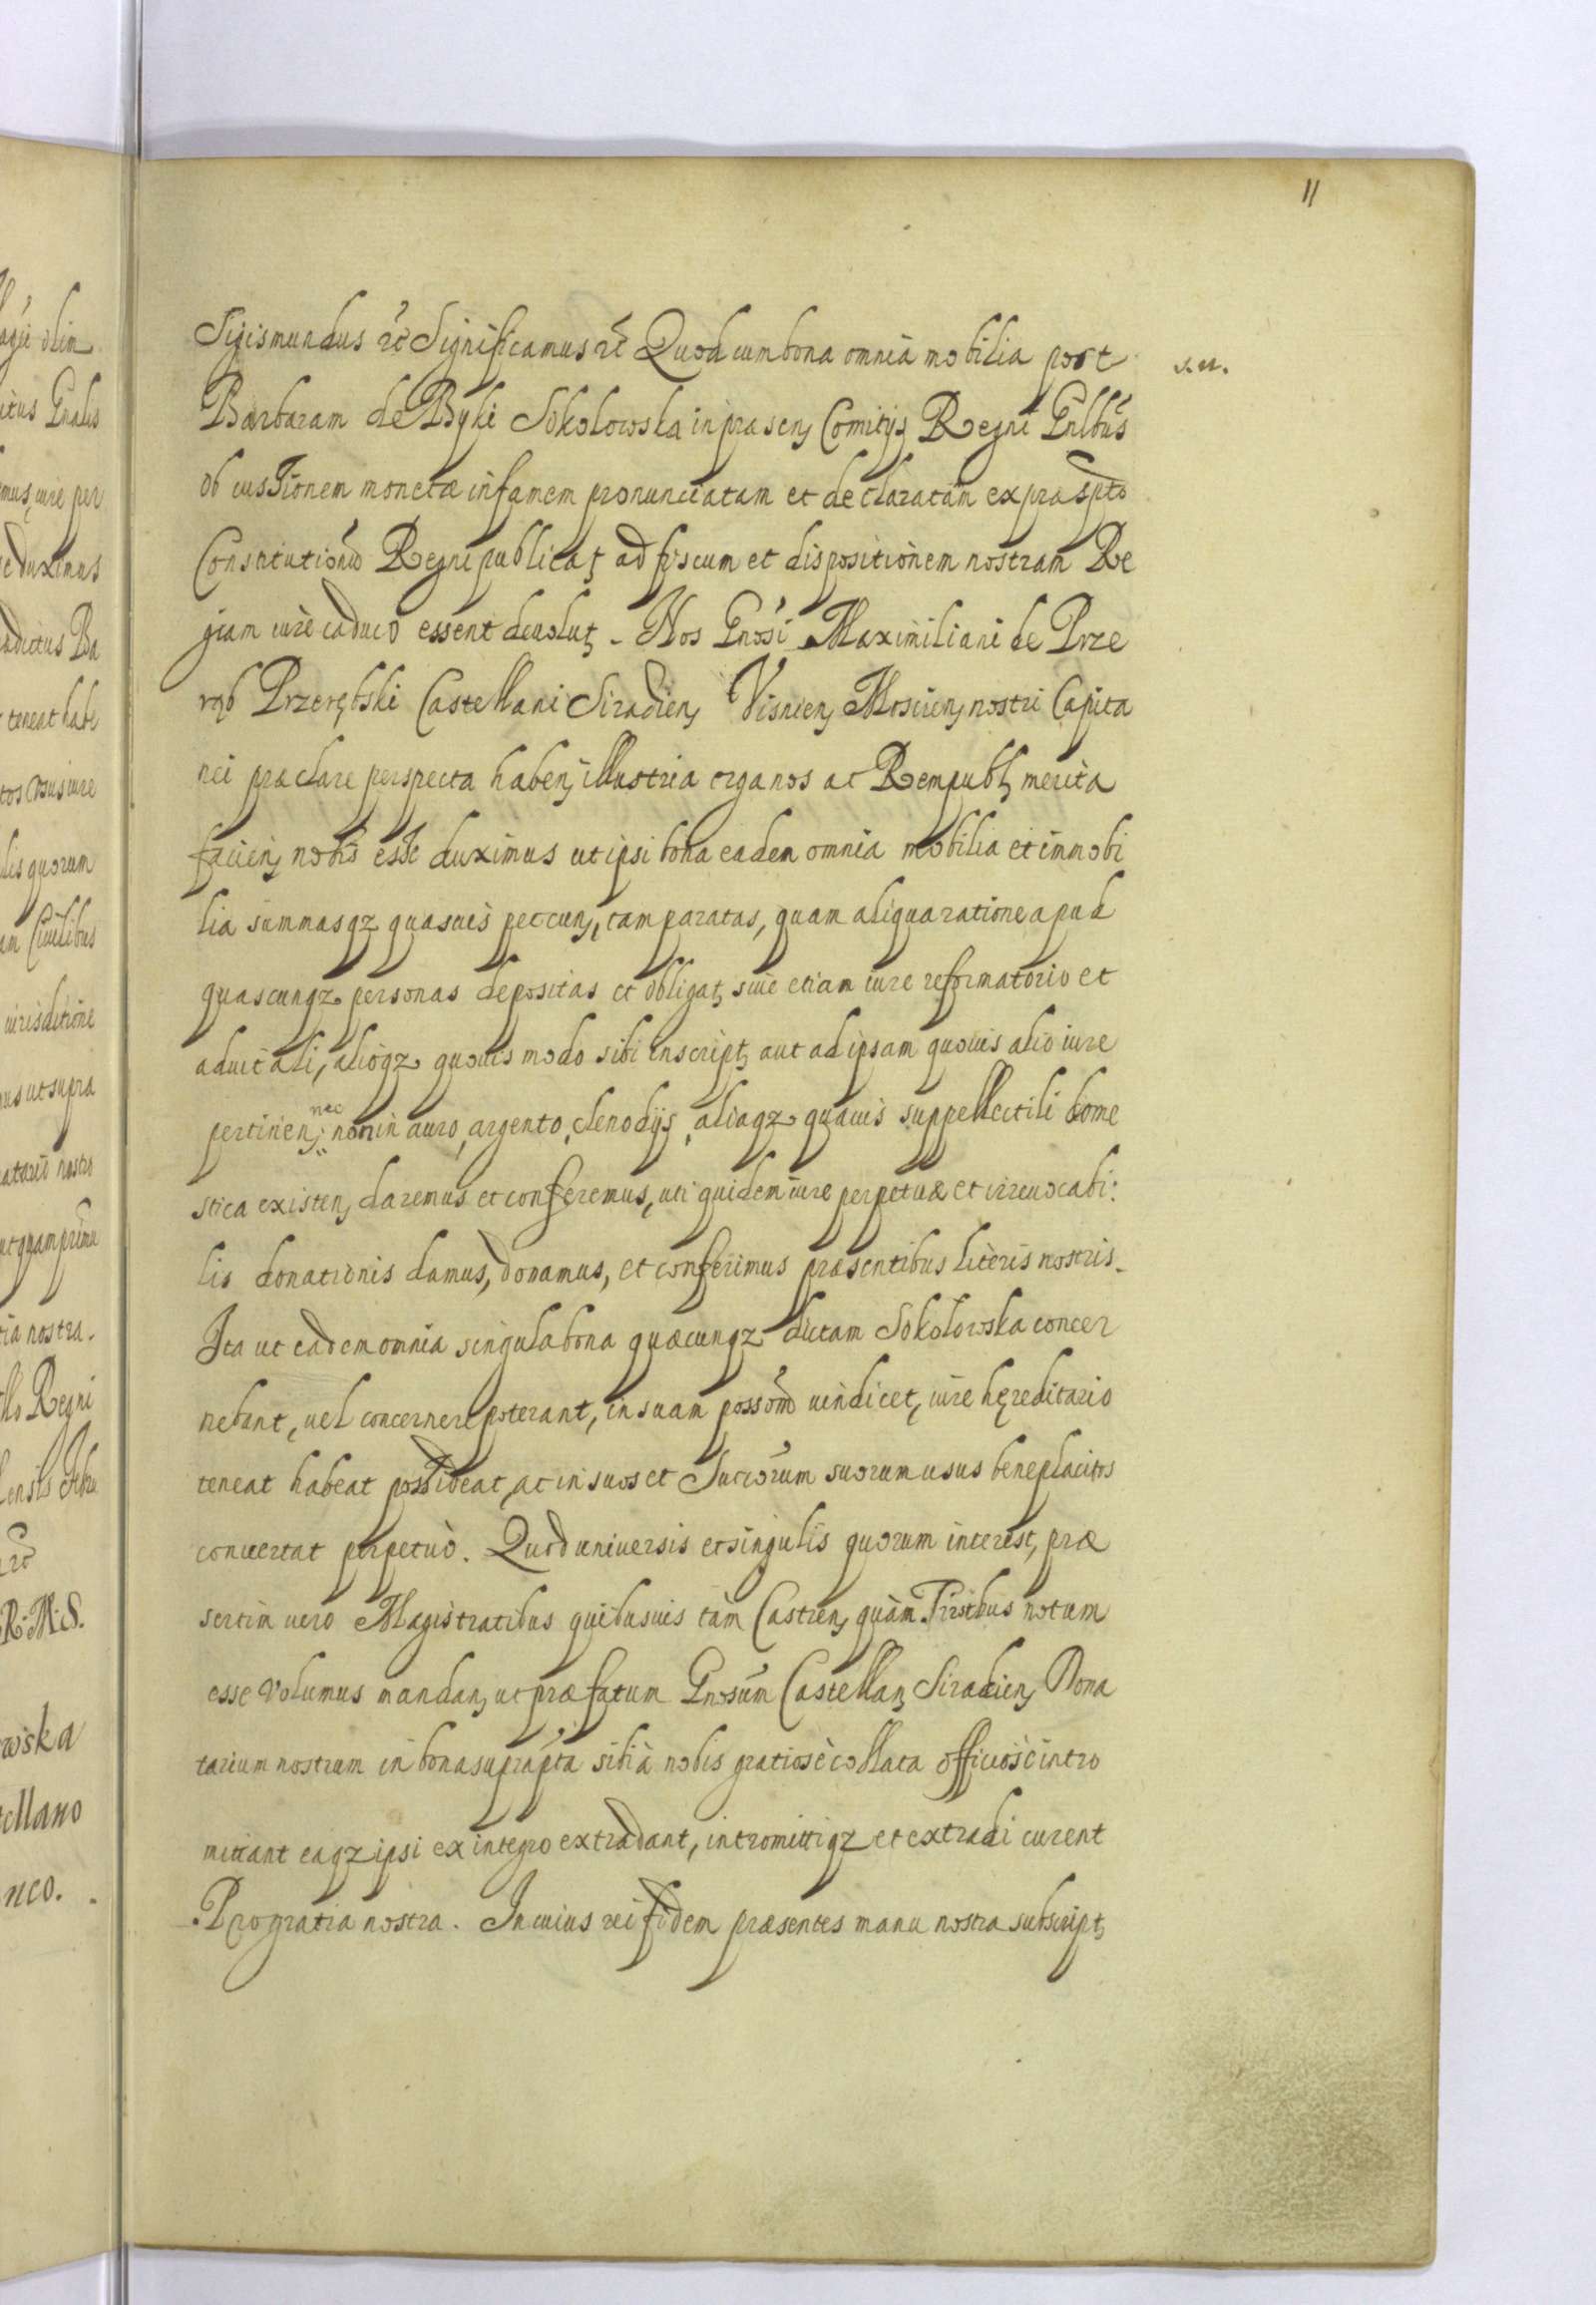 11
Sigismundus etc Significamus etc Quod cum bona omnia mobilia post
Barbaram de Byki Sokolowska in præsen, Comitijs Regni Gnlbus
ob cussionem monetæ infamem pronunciatam et declaratam ex præspto
Constitutionũ Regni publicat, ad fiscum et dispositionem nostram Re
giam iure caduco essent deuolut, - Nos Gnosi Maximiliani de Prze
rąb Przerębski Castellani Siradien, Visnen, Moscien, nostri Capita
nei præclare perspecta haben, illustria erga nos ac Rempubl, merita
facien, nobis esse duximus ut ipsi bona eadem omnia mobilia et immobi
lia summasqz quasuis peccun, tam paratas, quam aliqua ratione apud
quascunqz personas depositas et obligat, siue etiam iure reformatorio et
aduitali, alioqz quouis modo sibi inscript, aut ad ipsam quouis alio iure
pertinen, nec non in auro, argento, clenodijs, aliaqz quauis suppellectili dome
stica existen, daremus et conferemus, uti quidem iure perpetuæ et irreuocabi:
lis donationis damus, donamus, et conferimus præsentibus literis nostris.
Ita ut eadem omnia singula bona quæcunqz dictam Sokolowska concer
nebant, uel concernere poterant, in suam possõm uindicet, iure hęreditario
teneat habeat possideat, ac in suos et Succorum suorum usus beneplacitos
conuertat perpetuò. Quod uniuersis et singulis quorum interest, præ
sertim uero Magistratibus quibusuis tàm Castren, quàm Trrstbus notum
esse volumus mandan, ut præfatum Gnosum Castellan, Siradien, Dona
tarium nostrum in bona suprapta sibi à nobis gratiosè collata officiosè intro
mittant eaqz ipsi ex integro extradant, intromittiqz et extradi curent
Pro gratia nostra. In cuius rei fidem præsentes manu nostra subscript,